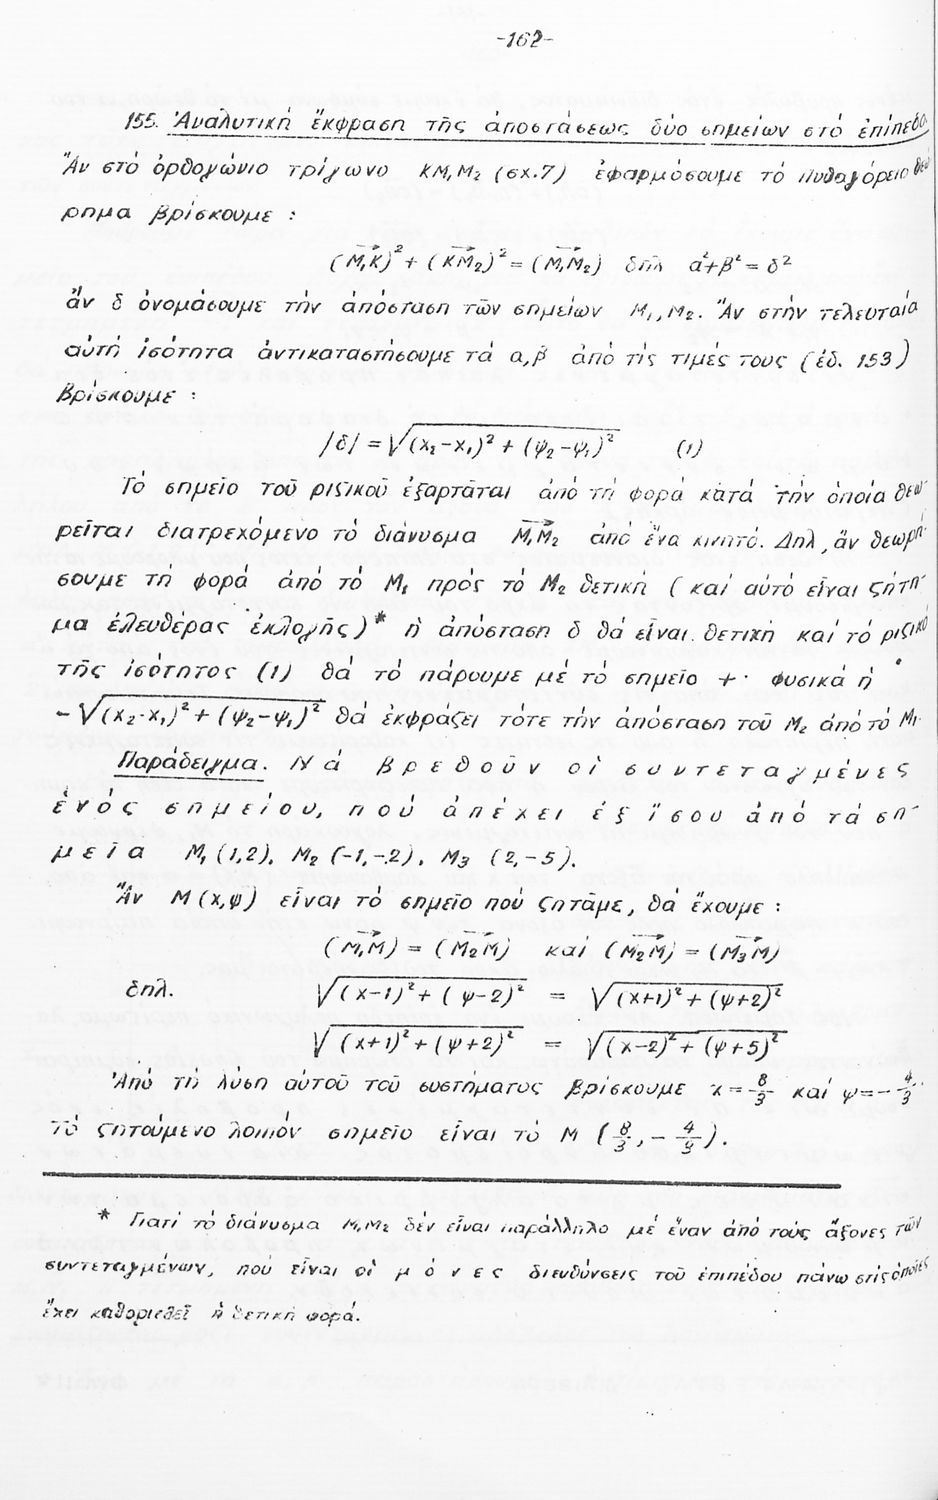 -162-
155. Ἀναλυτική ἔκφραση τῆς ἀποστάσεως δύο σημείων στό ἐπίπεδο.
Ἄν στό ὀρθογώνιο τρίγωνο ΚΜ₁Μ₂ (σχ.7) ἐφαρμόσουμε τό Πυθαγόρειο θεώ
ρημα βρίσκουμε :
(M₁K)² + (KM₂)² = (M₁M₂) δηλ α²+β² = δ²
ἄν δ ὀνομάσουμε τήν ἀπόσταση τῶν σημείων Μ₁, Μ₂. Ἄν στήν τελευταία
αὐτή ἰσότητα ἀντικαταστήσουμε τά α,β ἀπό τίς τιμές τους (ἐδ. 153)
βρίσκουμε :
/δ/ = √(x₂-x₁)² + (ψ₂-ψ₁)² (1)
Τό σημεῖο τοῦ ριζικοῦ ἐξαρτᾶται ἀπό τή φορά κατά τήν ὁποία θεω
ρεῖται διατρεχόμενο τό διάνυσμα M₁M₂ ἀπό ἕνα κινητό. Δηλ, ἄν θεωρή
σουμε τή φορά ἀπό τό Μ₁ πρός τό Μ₂ θετική ( καί αὐτό εἶναι ζήτη
μα ἐλεύθερας ἐκλογῆς)* ἡ ἀπόσταση δ θά εἶναι θετική καί τό ριζικό
τῆς ἰσότητος (1) θά τό πάρουμε μέ τό σημεῖο +· φυσικά ἡ
-√(x₂-x₁)² + (ψ₂-ψ₁)² θά ἐκφράζει τότε τήν ἀπόσταση τοῦ Μ₂ ἀπό τό Μ₁.
Παράδειγμα. Νά βρεθοῦν οἱ συντεταγμένες
ἑνός σημείου, πού ἀπέχει ἐξ ἴσου ἀπό τά ση
μεῖα Μ₁ (1,2), Μ₂ (-1,-2), Μ₃ (2,-5).
Ἄν Μ(x,ψ) εἶναι τό σημεῖο πού ζητᾶμε, θά ἔχουμε :
(M₁M) = (M₂M) καί (M₂M) = (M₃M)
δηλ. √(x-1)² + (ψ-2)² = √(x+1)² + (ψ+2)²
√(x+1)² + (ψ+2)² = √(x-2)² + (ψ+5)²
Ἀπό τή λύση αὐτοῦ τοῦ συστήματος βρίσκουμε x = -8/3 καί ψ = -4/3.
Τό ζητούμενο λοιπόν σημεῖο εἶναι τό Μ (8/3, -4/3).
* Γιατί τό διάνυσμα Μ₁Μ₂ δέν εἶναι παράλληλο μέ ἕναν ἀπό τούς ἄξονες τῶν
συντεταγμένων, πού εἶναι οἱ μόνες διευθύνσεις τοῦ ἐπιπέδου πάνω στίς ὁποῖες
ἔχει καθοριστεῖ ἡ θετική φορά.